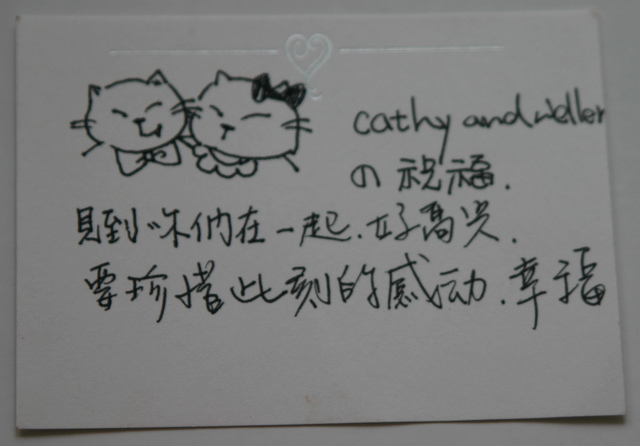 cathy and weller
の祝福.
見到你們在一起.好高兴.
要珍惜此刻的感动.幸福